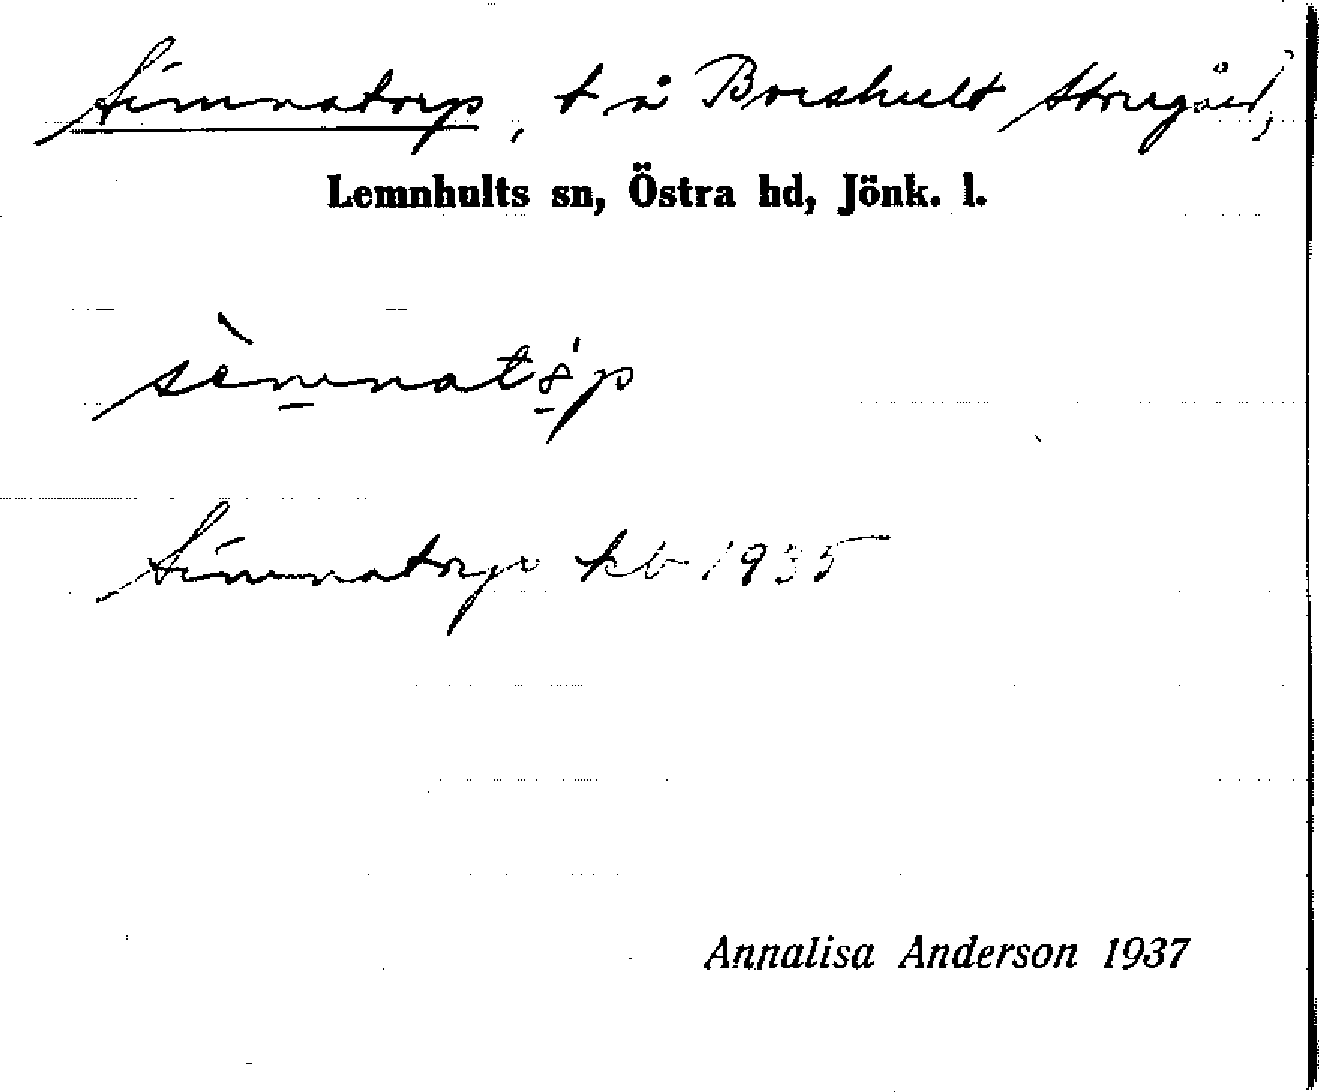 Simnatorp, t å Boeshult Storegård,
Lemnhults sn, Östra hd, Jönk. l.
Simnatorp kb 1935
Annalisa Anderson 1937